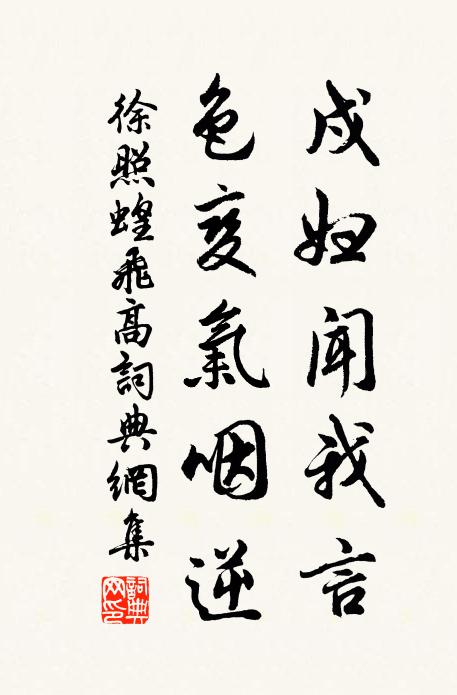 戍妇闻我言
色变氣咽逆
徐照蝗飛高詞典網集
詞典网印